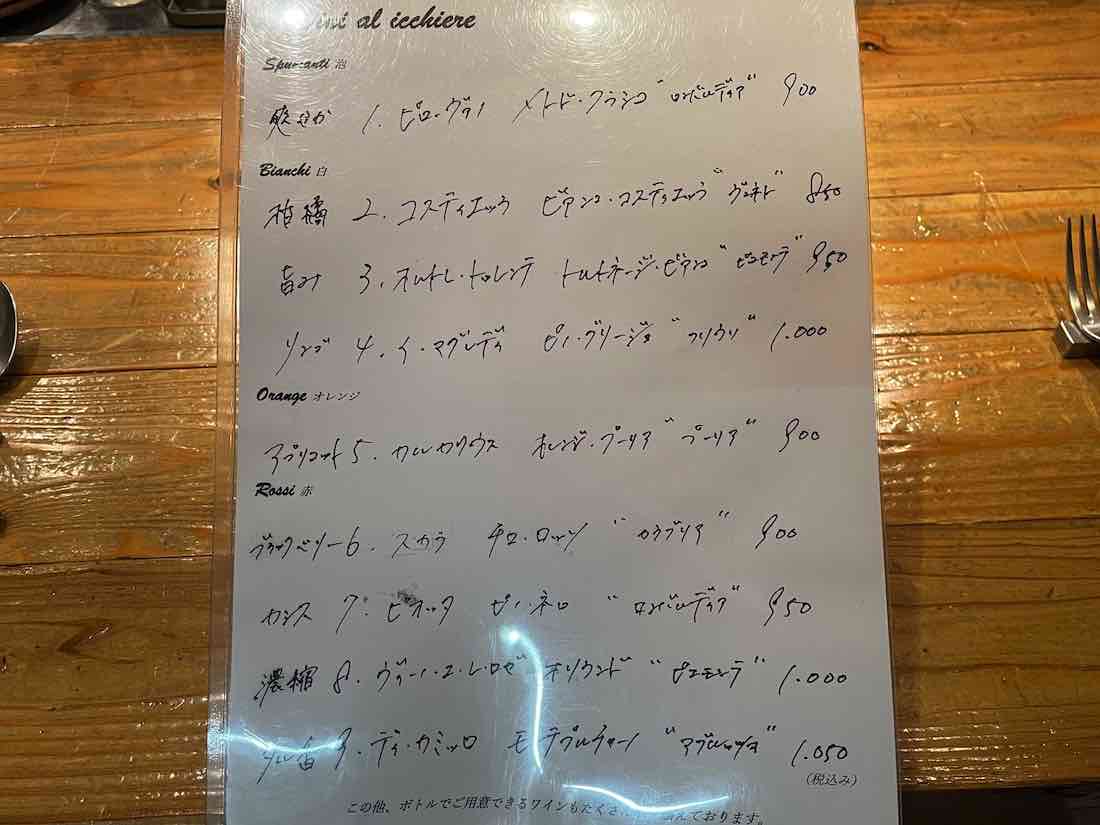 ini al icchiere
Spumanti 泡
爽やか 1. ピローヴァノ メトド・クラシコ "ロンバルディア" 900
Bianchi 白
柑橘 2. コスティエッラ ビアンコ・コスティエッラ "ヴェネト" 850
旨み 3. オルトレ・トレンテ トルトネージ・ビアンコ "ピエモンテ" 950
リンゴ 4. イ・マグレディ ピノ・グリージョ "フリウリ" 1.000
Orange オレンジ
アプリコット 5. カルカリウス オレンジ・プーリア "プーリア" 900
Rossi 赤
ブラックベリー 6. スカラ チロ・ロッソ "カラブリア" 900
カシス 7. ピオッタ ピノ・ネロ "ロンバルディア" 950
濃縮 8. ヴィーノ・エ・レ・ローゼ オリウンド "ピエモンテ" 1.000
9. ディ・カミッロ モンテプルチャーノ "アブルッツォ" 1.050
(税込み)
この他、ボトルでご用意できるワインもたくさ えております。